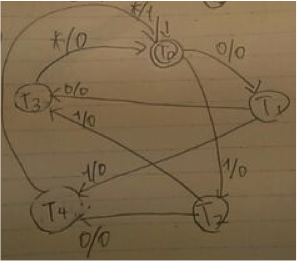 */1
*/0
T0
0/0
T3
0/0
T1
1/0
1/0
1/0
T4
T2
0/0